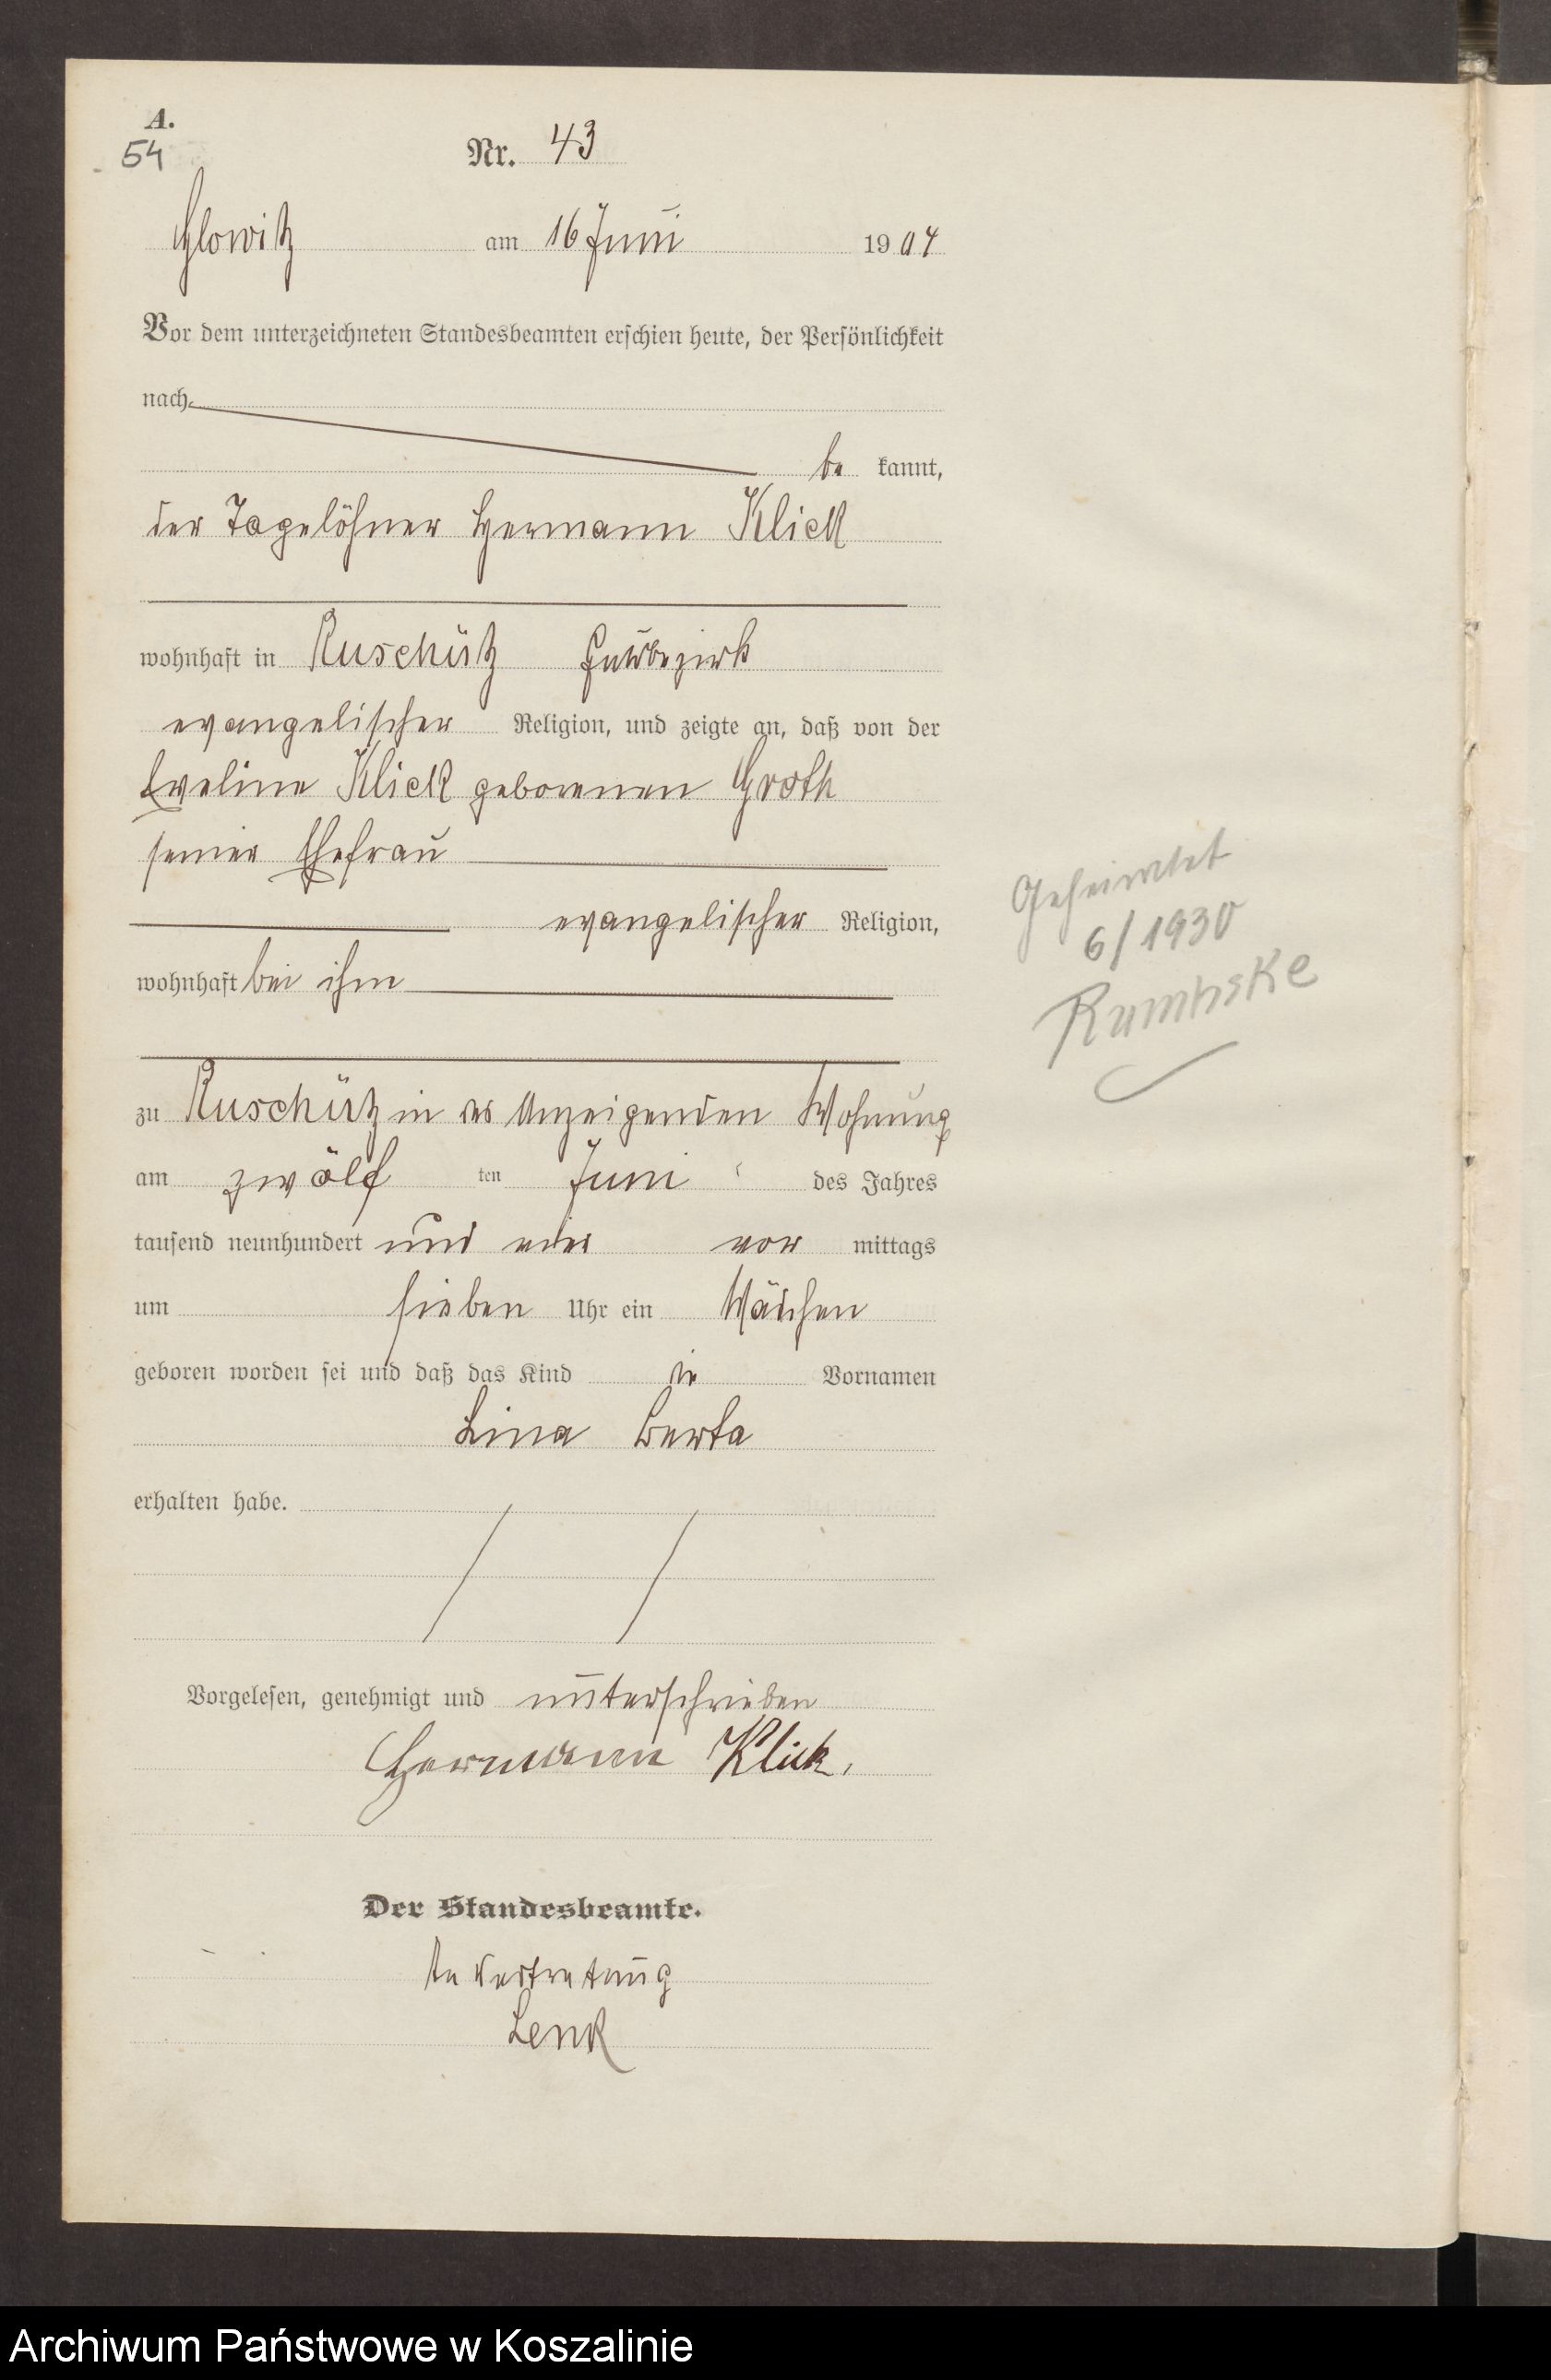 A.
54
Nr. 43
Glowitz am 16 Juni 1904
Vor dem unterzeichneten Standesbeamten erschien heute, der Persönlichkeit
nach
be kannt,
der Tagelöhner Hermann Klick
wohnhaft in Ruschütz Gutsbezirk
evangelischer Religion, und zeigte an, daß von der
Eveline Klick geborenen Groth
seiner Ehefrau
evangelischer Religion,
wohnhaft bei ihm
zu Ruschütz in des Anzeigenden Wohnung
am zwölf ten Juni des Jahres
tausend neunhundert und vier vor mittags
um sieben Uhr ein Mädchen
geboren worden sei und daß das Kind die Vornamen
Lina Berta
erhalten habe.
Vorgelesen, genehmigt und unterschrieben
Hermann Klick.
Der Standesbeamte.
In Vertretung
Lenk
Geheiratet
6/1930
Rumbske
Archiwum Państwowe w Koszalinie